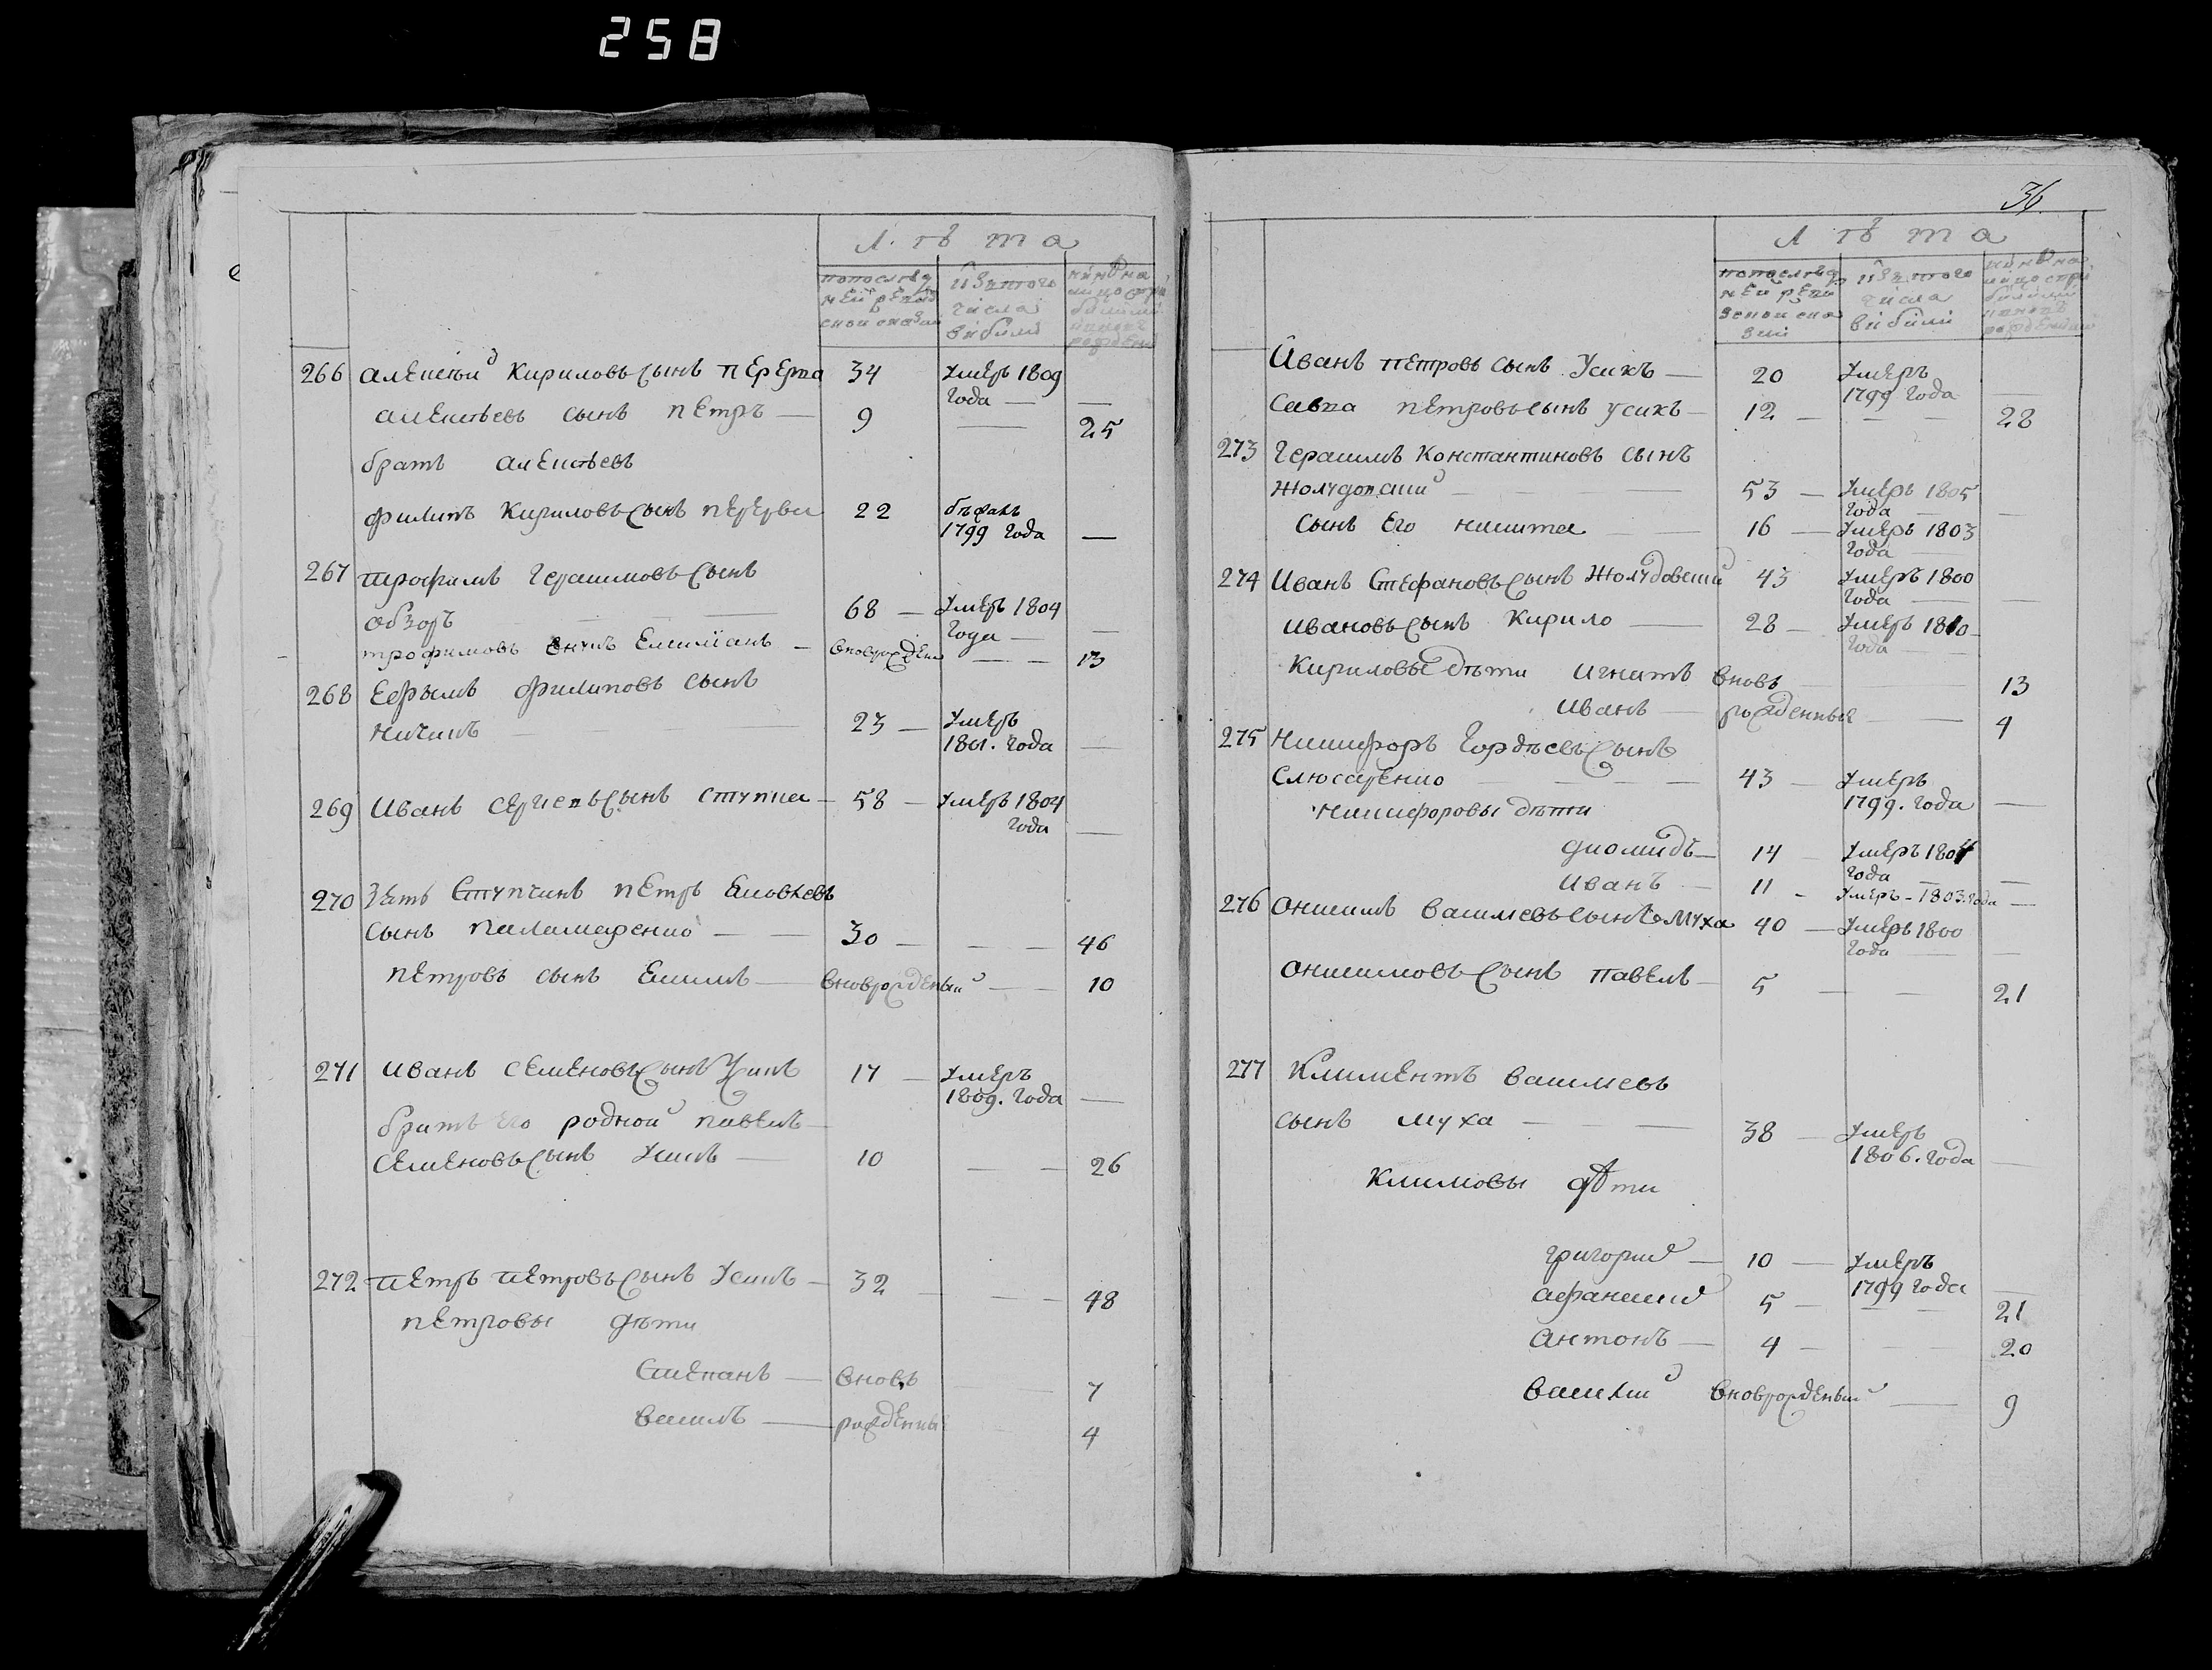 258
Лѣта
попослѣд ней ревиз ской сказки
изътого числа выбыли
266 Алексей Кириловъ сынъ Перерва 34 умеръ 1809 года —
Алексѣевъ сынъ Петръ — 9 — 25
братъ Алексѣевъ
Филипъ Кириловъ сынъ Перерва 22 бѣжалъ 1799 года —
267 Трофимъ Герасимовъ сынъ
Обзоръ — 68 — умеръ 1804 года —
Трофимовъ внукъ Емилианъ — вновьрожден — 13
268 Ефрымъ Филиповъ сынъ
Кичикъ — 23 — умеръ 1801. года —
269 Иванъ Сергіевъ сынъ Ступка — 58 — умеръ 1804 года —
270 Зять Ступчинъ Петръ Яковлевъ
сынъ Паламаренко — 30 — — 46
Петровъ сынъ Екимъ — вновьрожденый — 10
271 Иванъ Семеновъ сынъ Усикъ 17 — умеръ 1809. года —
братъ его родной Павелъ —
Семеновъ сынъ Усикъ — 10 — 26
272 Петръ Петровъ сынъ Усикъ — 32 — 48
Петровы дѣти
Степанъ — вновь — 7
Василъ — рожденны 4
36
Лѣта
попослѣд ней реви зской ска зки
изътого числа выбыли
Иванъ Петровъ сынъ Усикъ — 20 умеръ 1799 года —
Савка Петровъ сынъ Усикъ — 12 — 28
273 Герасимъ Константиновъ сынъ
Жолудовский — 53 — умеръ 1805 года —
сынъ его Никита — 16 — умеръ 1803 года
274 Иванъ Стефановъ сынъ Жолудовский 43 умеръ 1800 года —
Ивановъ сынъ Кирило — 28 — умеръ 1810 года —
Кириловы дѣти Игнатъ вновь — 13
Иванъ — рожденные — 4
275 Никифоръ Гордѣевъ сынъ
Слюсаренко — 43 — умеръ 1799. года —
Никифоровы дѣти
Диомидъ — 14 умеръ 1804 года —
Иванъ — 11 — умеръ — 1803. года —
276 Онисимъ Васильевъ сынъ Муха 40 — умеръ 1800 года —
Онисимовъ сынъ Павелъ — 5 — 21
277 Климентъ Васильевъ
сынъ Муха — 38 — умеръ 1806. года —
Климовы дѣти
Григорий — 10 — умеръ 1799 года —
Афанасий 5 — 21
Антонъ — 4 — 20
Василий вновьрожденый — 9